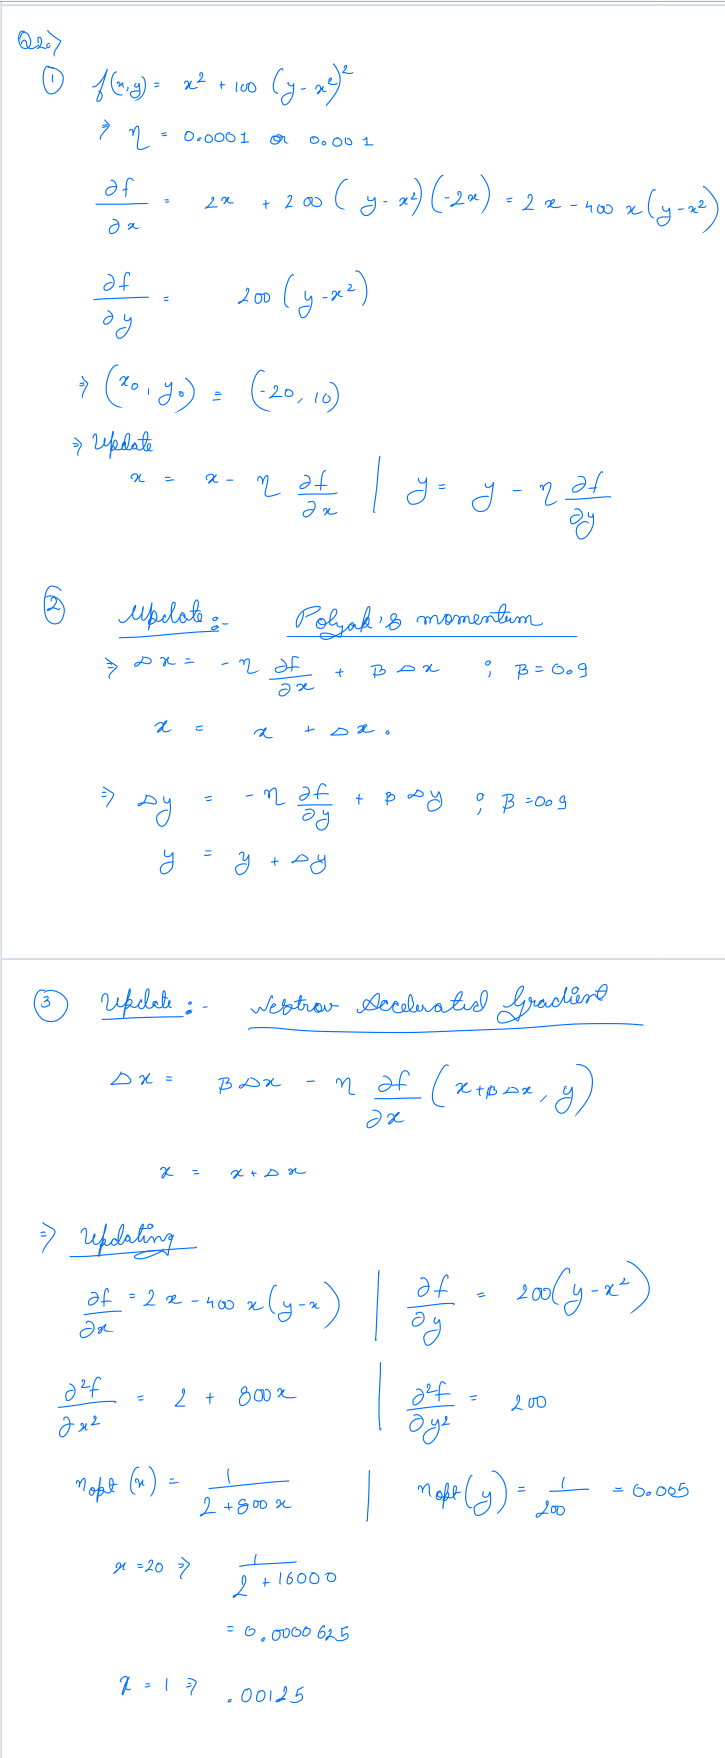 Q2.>
① f(x,y) = x² + 100 (y - x²)²
⇒ η = 0.0001 or 0.001
∂f/∂x = 2x + 200 (y - x²)(-2x) = 2x - 400 x(y-x²)
∂f/∂y = 200 (y - x²)
⇒ (x₀, y₀) = (-20, 10)
⇒ Update
x = x - η ∂f/∂x | y = y - η ∂f/∂y
② Update:- Polyak's momentum
⇒ Δx = -η ∂f/∂x + β Δx ; β = 0.9
x = x + Δx.
⇒ Δy = -η ∂f/∂y + β Δy ; β = 0.9
y = y + Δy
③ Update:- Nestrov Accelerated Gradient
Δx = βΔx - η ∂f/∂x (x+βΔx, y)
x = x + Δx
⇒ Updating
∂f/∂x = 2x - 400 x(y-x) | ∂f/∂y = 200(y-x²)
∂²f/∂x² = 2 + 800x | ∂²f/∂y² = 200
ηopt (x) = 1/(2+800x) | ηopt(y) = 1/200 = 0.005
x = 20 ⇒ 1/(2+16000)
= 0.0000625
x = 1 ⇒ .00125